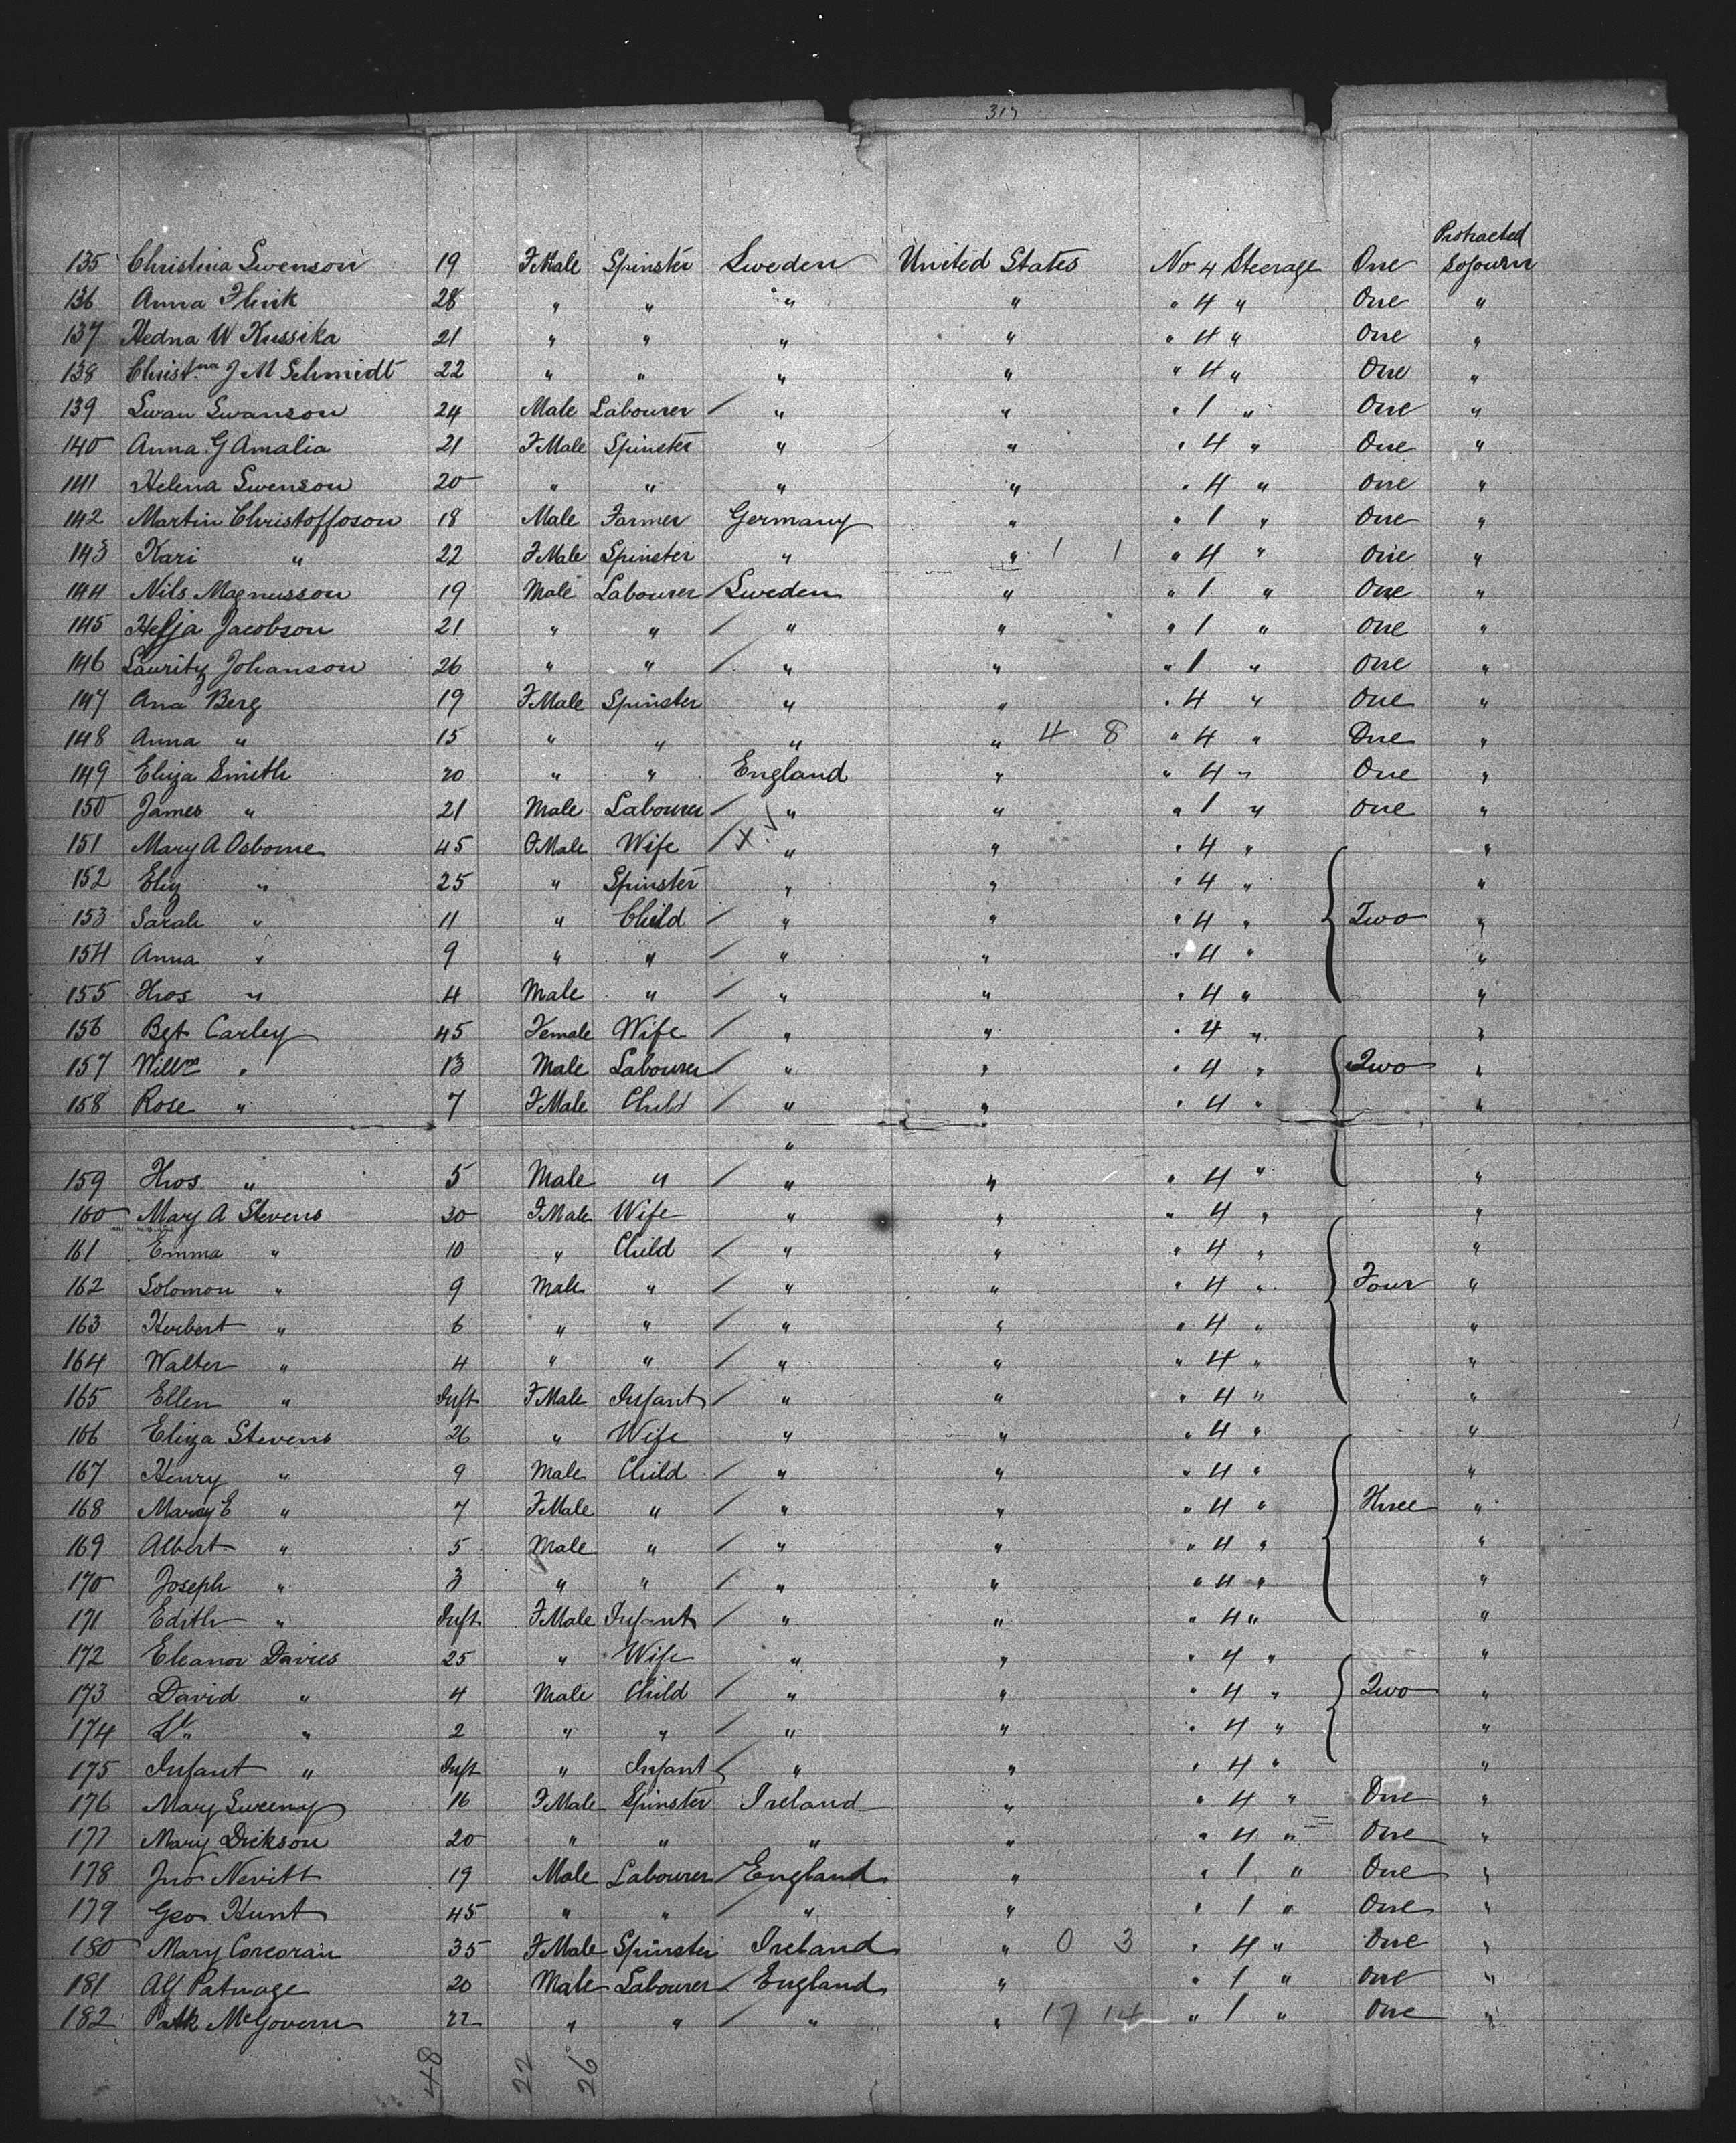 317
Protracted
135 Christina Swenson 19 FMale Spinster Sweden United States No 4 Steerage One Sojourn
136 Anna Flink 28 " " " " " 4 " One "
137 Hedna W Kussika 21 " " " " " 4 " One "
138 Christina J M Schmidt 22 " " " " " 4 " One "
139 Swan Swanson 24 Male Labourer / " " " 1 " One "
140 Anna G Amalia 21 FMale Spinster " " " 4 " One "
141 Helena Swenson 20 " " " " " 4 " One "
142 Martin Christoffoson 18 Male Farmer Germany " " 1 " One "
143 Kari " 22 FMale Spinster " " 1 1 " 4 " One "
144 Nils Magnusson 19 Male Labourer / Sweden " " 1 " One "
145 Helja Jacobson 21 " " / " " " 1 " One "
146 Lauritz Johanson 26 " " / " " " 1 " One "
147 Ana Berg 19 FMale Spinster " " " 4 " One "
148 Anna " 15 " " " " 4 8 " 4 " One "
149 Eliza Smith 20 " " England " " 4 " One "
150 James " 21 Male Labourer / " " " 1 " One "
151 Mary A Osborne 45 FMale Wife / X " " " 4 " "
152 Eliz " 25 " Spinster " " " 4 " "
153 Sarah " 11 " Child / " " " 4 " Two "
154 Anna " 9 " " / " " " 4 " "
155 Thos " 4 Male " / " " " 4 " "
156 Bgt Carley 45 Female Wife / " " " 4 " "
157 Willm " 13 Male Labourer / " " " 4 " Two "
158 Rose " 7 FMale Child / " " " 4 " "
"
159 Thos " 5 Male " / " " " 4 " "
160 Mary A Stevens 30 FMale Wife " " " 4 " "
161 Emma " 10 " Child / " " " 4 " "
162 Solomon " 9 Male " / " " " 4 " Four "
163 Herbert " 6 " " / " " " 4 " "
164 Walter " 4 " " / " " " 4 " "
165 Ellen " Inft FMale Infant / " " " 4 " "
166 Eliza Stevens 26 " Wife " " " 4 " "
167 Henry " 9 Male Child / " " " 4 " "
168 Mary E " 7 FMale " / " " " 4 " Three "
169 Albert " 5 Male " / " " " 4 " "
170 Joseph " 3 " " / " " " 4 " "
171 Edith " Inft FMale Infant / " " " 4 " "
172 Eleanor Davies 25 " Wife " " " 4 " "
173 David " 4 Male Child / " " " 4 " Two "
174 " 2 " " / " " " 4 " "
175 Infant " Inft " Infant / " " " 4 " "
176 Mary Sweeny 16 FMale Spinster Ireland " " 4 " One "
177 Mary Dickson 20 " " " " " 4 " One "
178 Jno Nevitt 19 Male Labourer / England " " 1 " One "
179 Geo Hunt 45 " " / " " " 1 " One "
180 Mary Corcoran 35 FMale Spinster Ireland " 0 3 " 4 " One "
181 Alf Patnage 20 Male Labourer / England " " 1 " One "
182 Patk McGovern 22 " " / " " 17 14 " 1 " One "
48 22 26